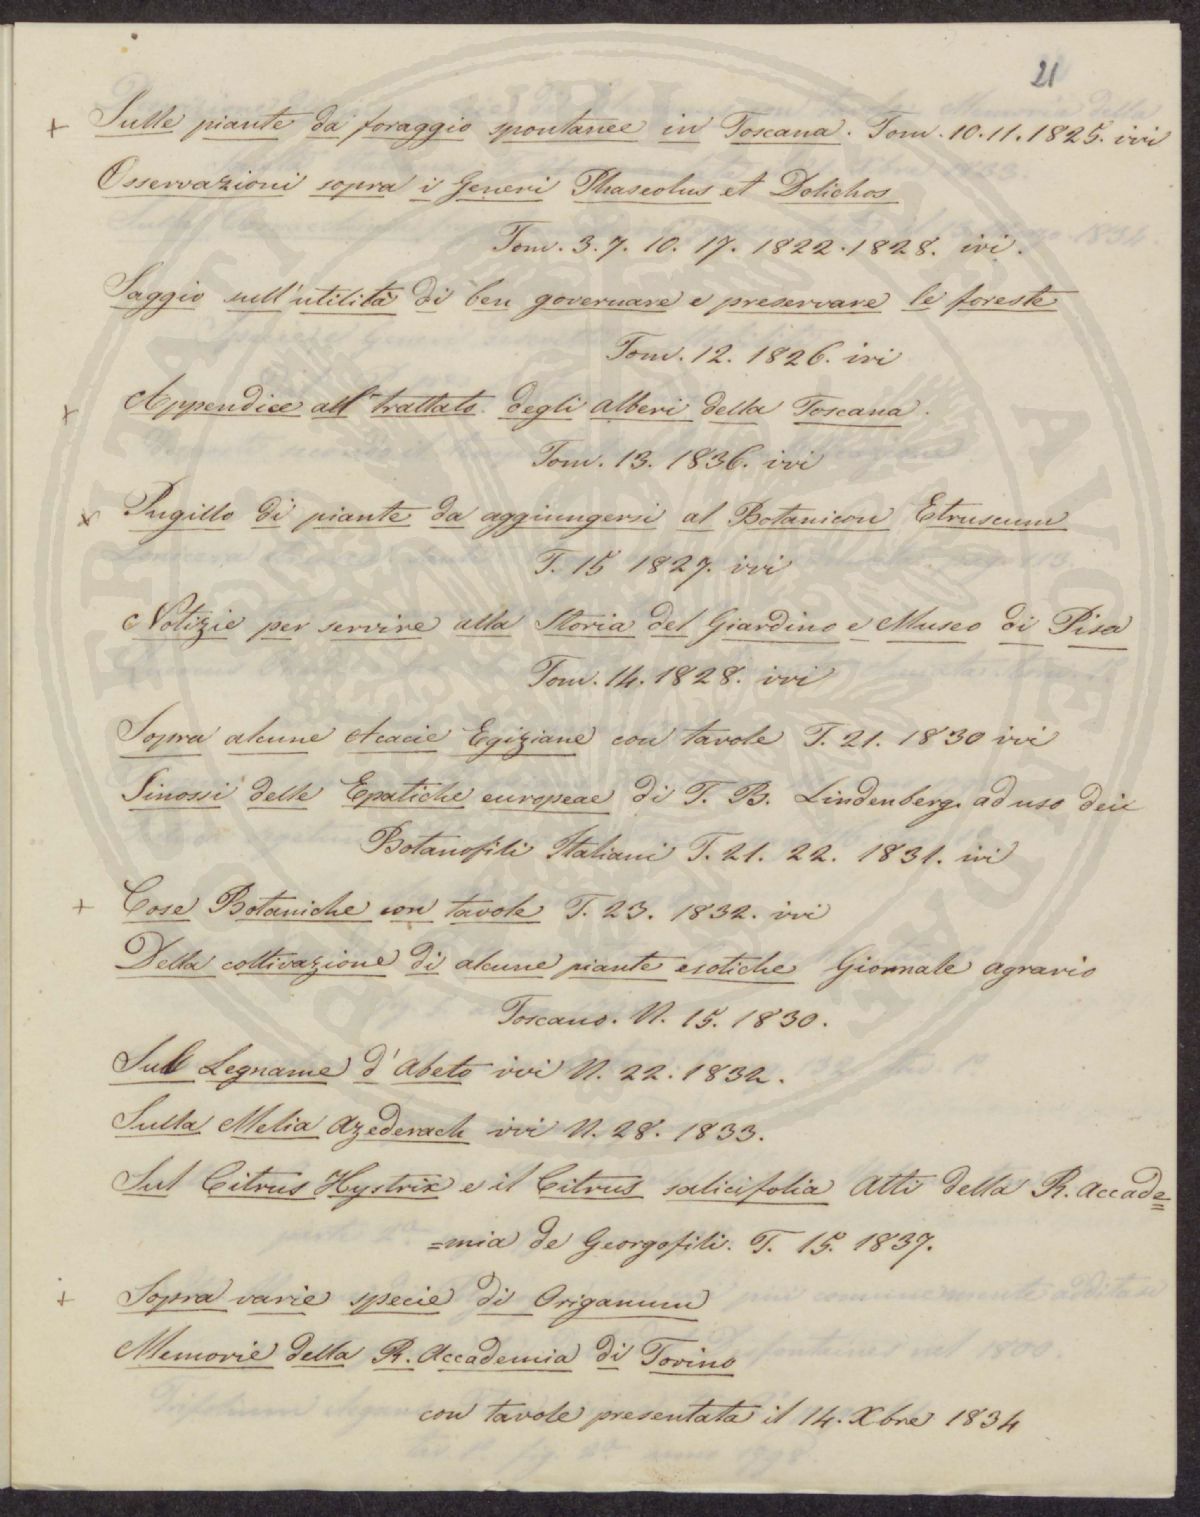 21
+ Sulle piante da foraggio spontanee in Toscana. Tom. 10.11.1825. ivi
Osservazioni sopra i Generi Phaseolus et Dolichos
Tom. 3. 7. 10. 17. 1822.1828. ivi.
Saggio sull'utilità di ben governare e preservare le foreste
Tom. 12. 1826. ivi
+ Appendice all trattato degli alberi della Toscana.
Tom. 13. 1836. ivi
x Pugillo di piante da aggiungersi al Botanicon Etruscum
T. 15 1827. ivi
Notizie per servire alla Storia del Giardino e Museo di Pisa
Tom. 14. 1828. ivi
Sopra alcune Acacie Egiziane con tavole T. 21. 1830 ivi
Sinossi delle Epatiche europeae di T. B. Lindenberg. ad uso dei
Botanofili Italiani T. 21. 22. 1831. ivi
+ Cose Botaniche con tavole T. 23. 1832. ivi
Della coltivazione di alcune piante esotiche Giornale agrario
Toscano. N. 15. 1830.
Sul Legname d'Abeto ivi N. 22. 1832.
Sulla Melia Azederach ivi N. 28. 1833.
Sul Citrus Hystrix e il Citrus salicifolia Atti della R. Accade=
=mia de Georgofili. T. 15. 1837.
+ Sopra varie specie di Origanum
Memorie della R. Accademia di Torino
con tavole presentata il 14. Xbre 1834